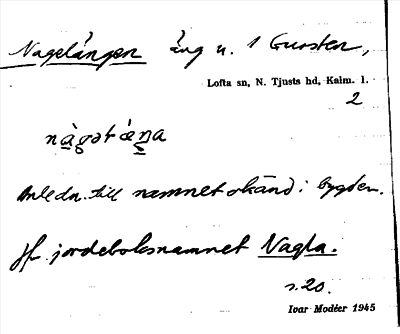 Nagelängen äng u. 1 Gursten,
Lofta sn, N. Tjusts hd, Kalm. l.
2
Anledn. till namnet okänd i bygden.
Jf. jordeboksnamnet Nagla.
s. 20.
Ivar Modéer 1945